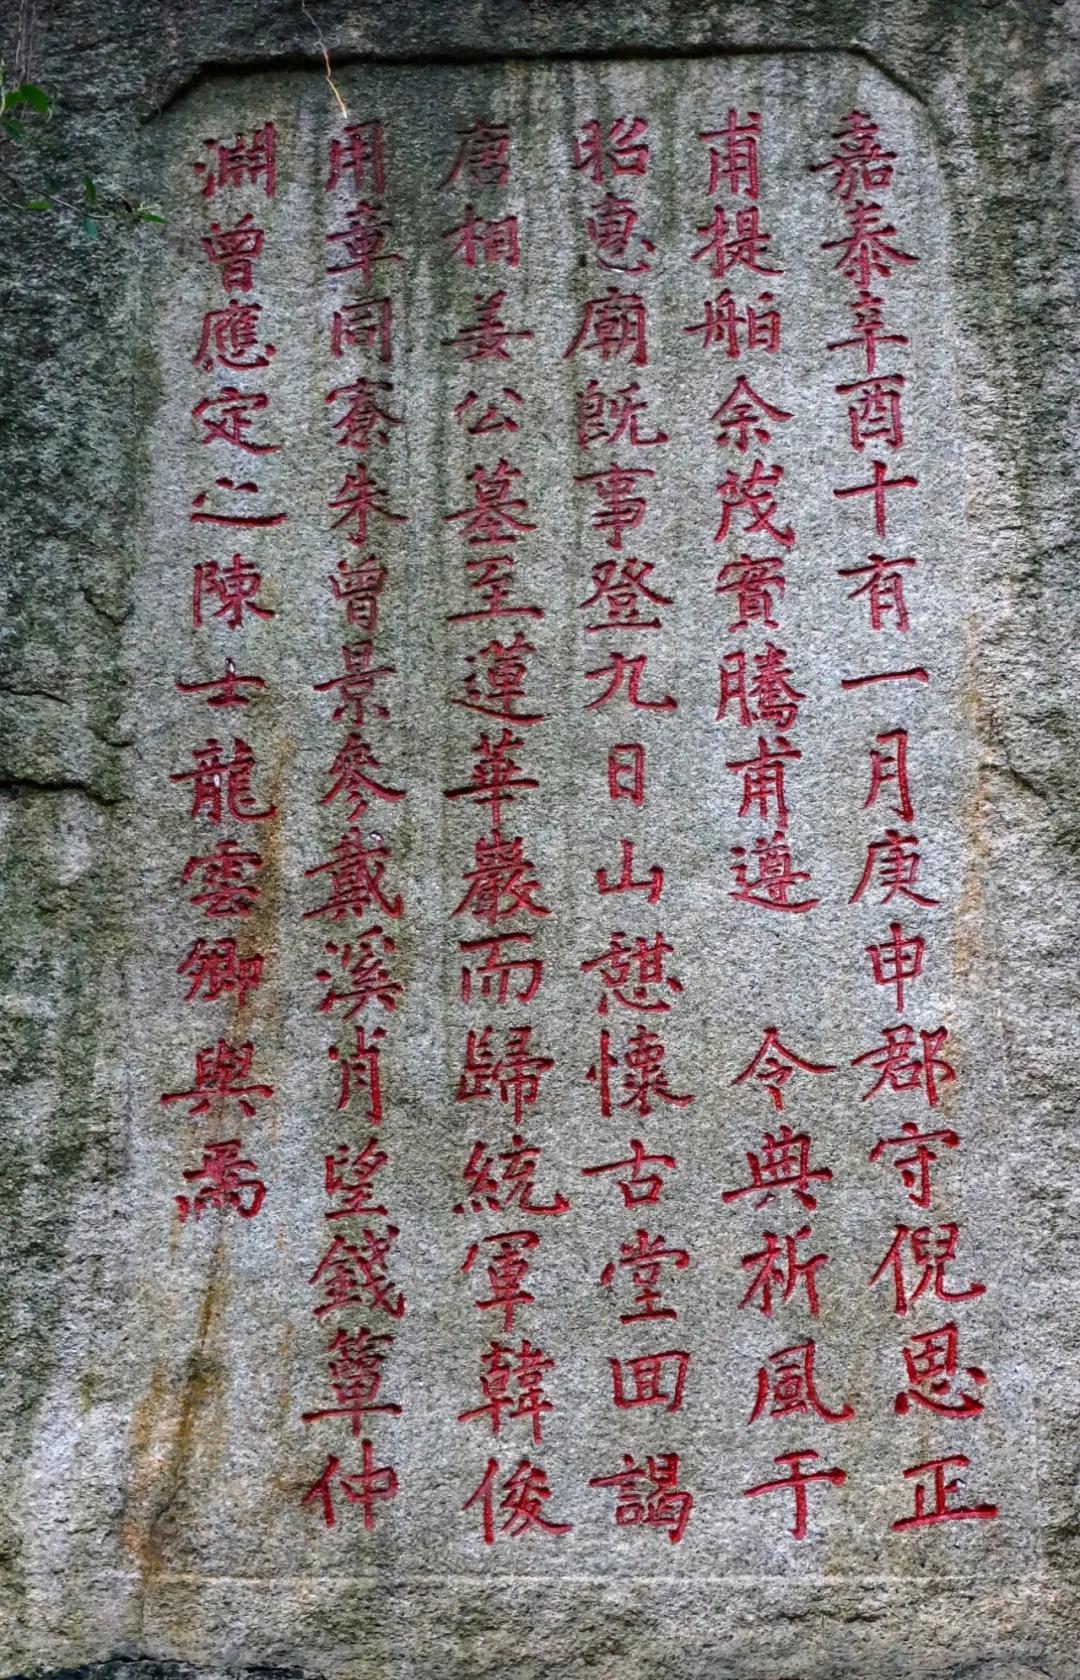 嘉泰辛酉十有一月庚申郡守倪思正
甫提舶余茂實騰甫遵 令典祈風于
昭惠廟旣事登九日山憇懷古堂囬謁
唐相姜公墓至蓮華巖而歸統軍韓俊
用章同寮朱曾景參戴溪肖望錢簞仲
淵曾應定之陳士龍雲卿與焉